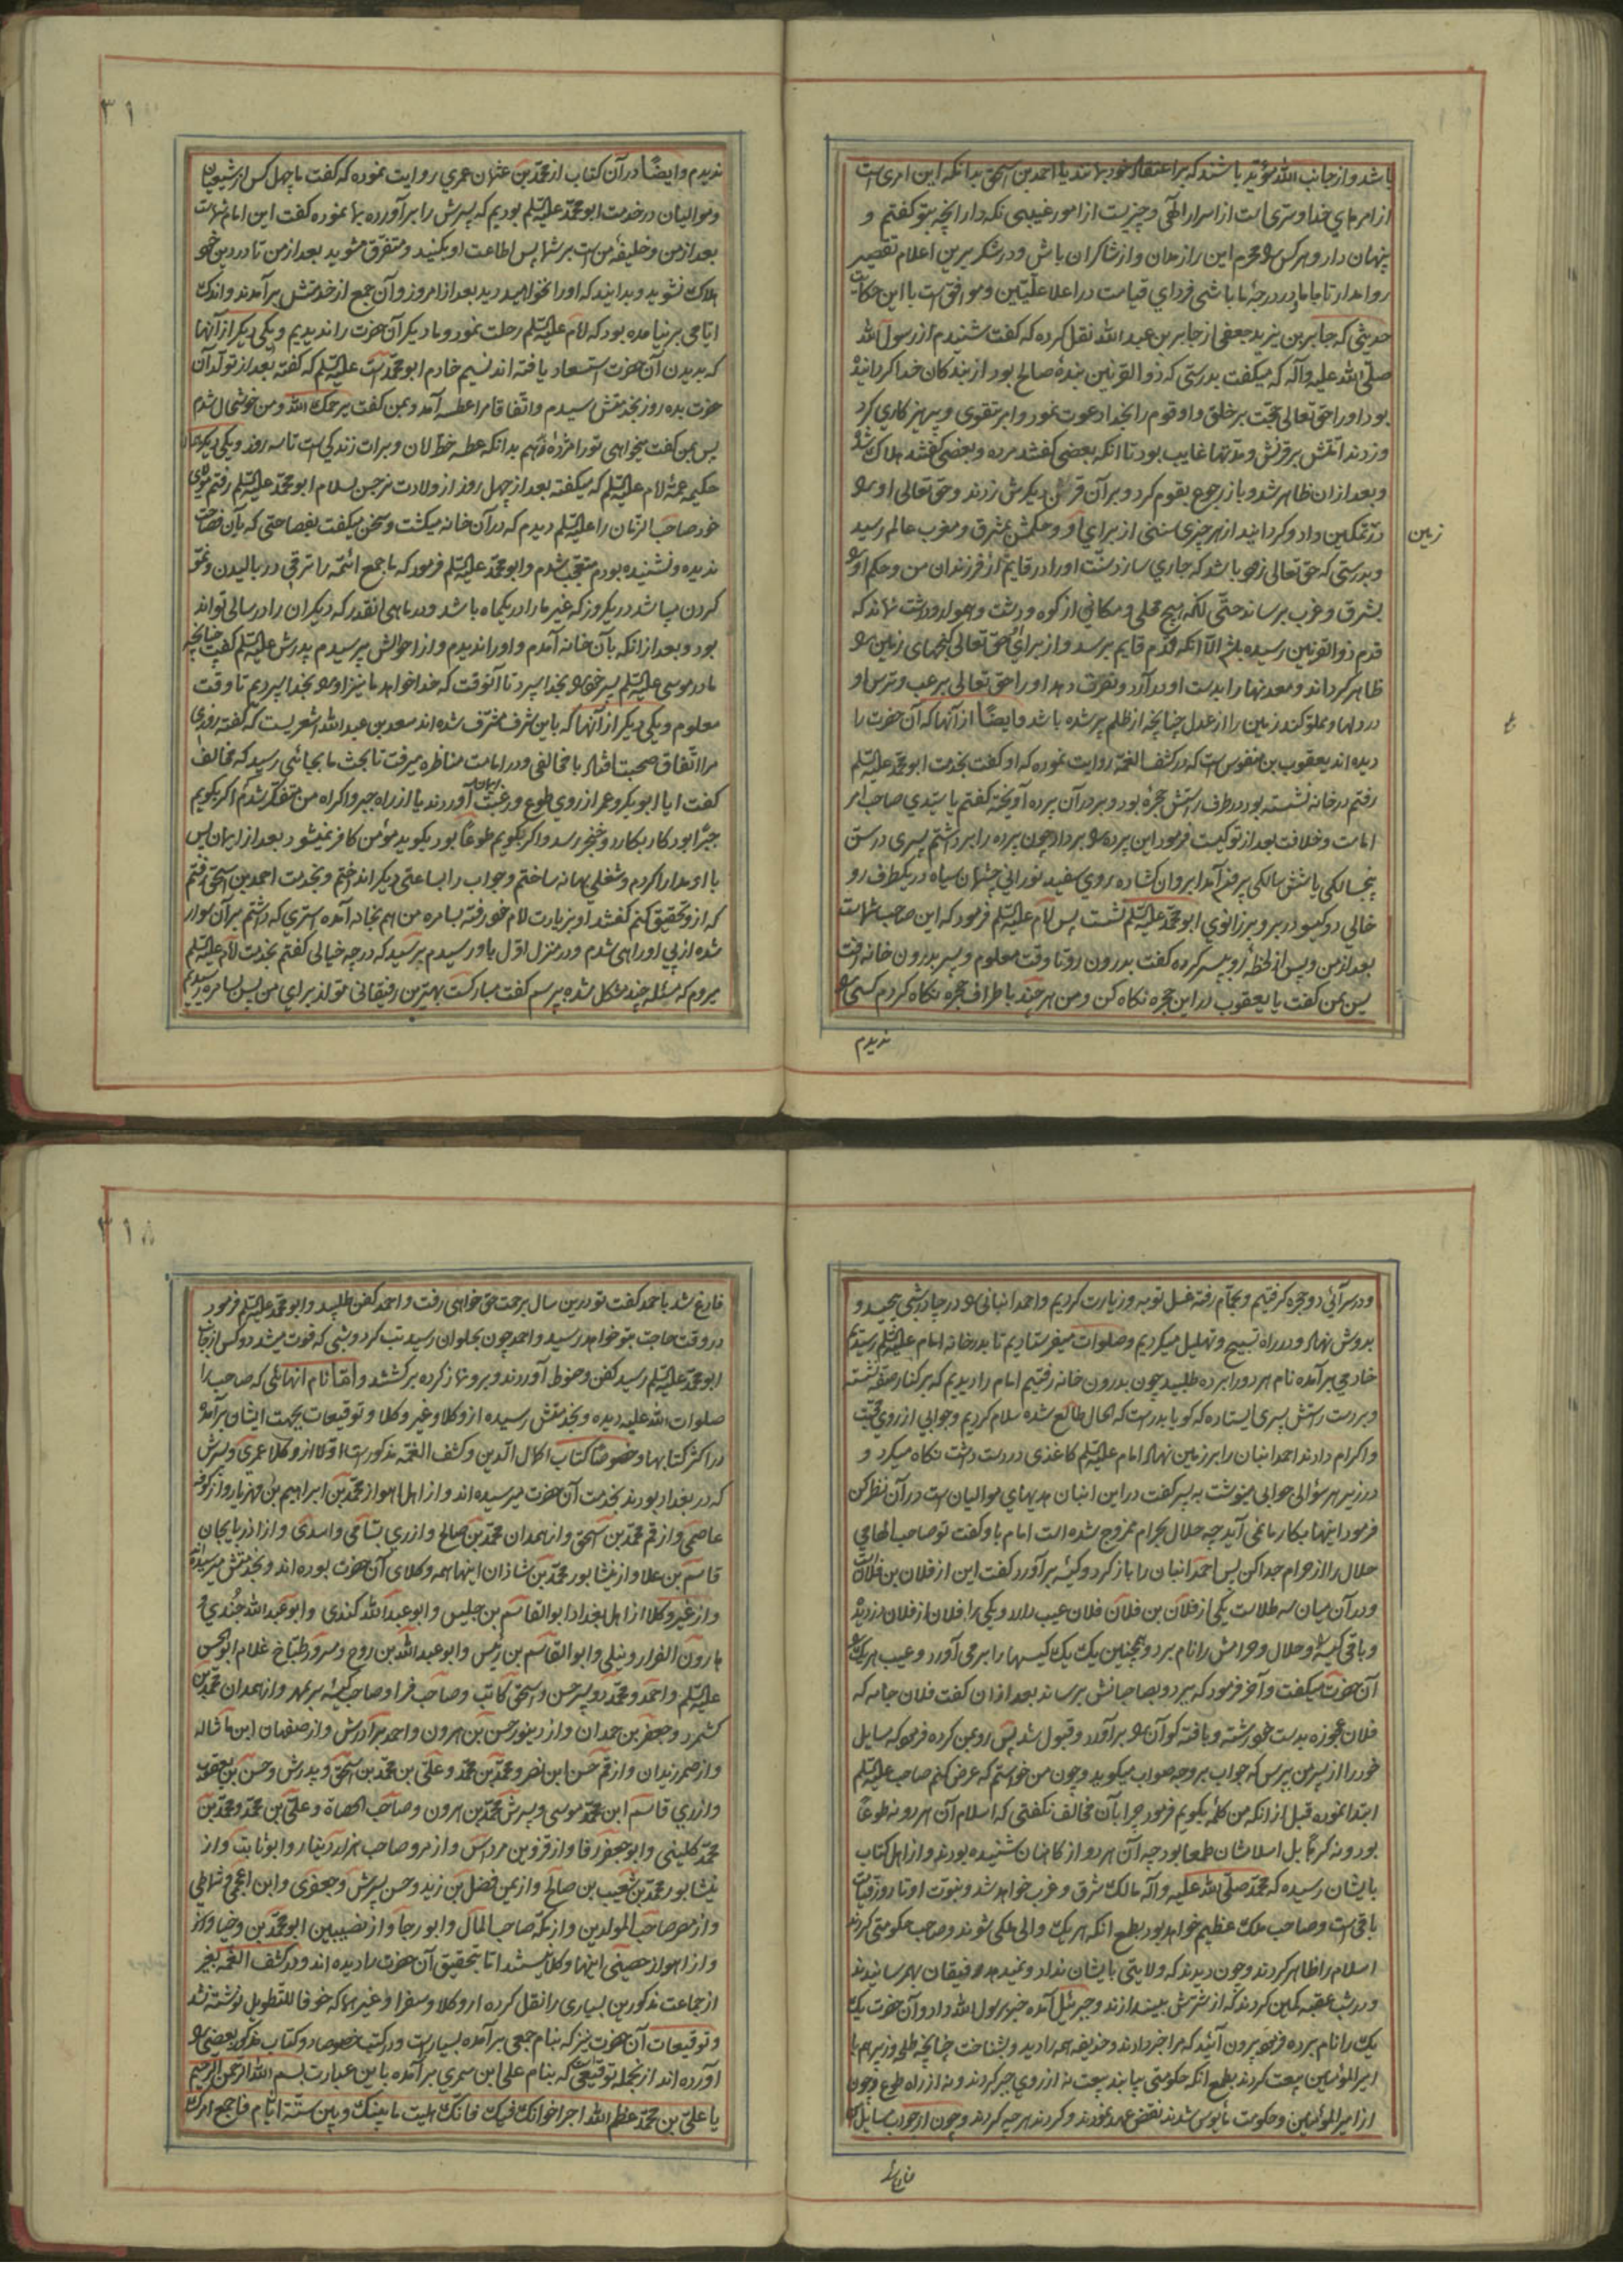 باشد و از جانب الله مؤید باشند که بر اعتقاد خود بمانند یا احمد بن اسحق بدانکه این امری است
از امرهای خدا و سری است از اسرار الهی و چیزیست از امور غیبی نکه دار آنچه بتو کفتم و
پنهان دار و هر کس را محرم این راز مدان و از شاکران باش و در شکر بر این اعلام تقصیر
روا مدار تا با ما در درجهٔ ما باشی فردای قیامت در اعلا علّیّین و موافق است با این حکایت
حدیثی که جابر بن یزید جعفی از جابر بن عبد الله نقل کرده که کفت شنیدم از رسول الله
صلّی الله علیه وآله که میکفت بدرستی که ذو القرنین بندهٔ صالح بود از بندکان خدا کردانیده
بود او را حق تعالی حجت بر خلق و او قوم را بخدا دعوت نمود و امر بتقوی و پرهیزکاری کرد
و زدند آتش بر قرنش و مدتها غایب بود تا آنکه بعضی کفتند مرده و بعضی کفتند هلاک شد
و بعد ازان ظاهر شد و باز رجوع بقوم کرد و بر آن قرن دیکرش زدند و حق تعالی او را
در تمکین داد و کردانید از هر چیزی سببی از برای او و حکمش بمشرق و مغرب عالم رسید
زمین
و بدرستی که حق تعالی زود باشد که جاری سازد سنّت او را در قایم از فرزندان من و حکم او را
بشرق و غرب برساند حتّی آنکه هیچ محلی و مکانی از کوه و دشت و هموار و درشت نماند که
قدم ذو القرنین رسیده باشد الّا آنکه قدم قایم برسد و از برای او حق تعالی کنجهای زمین را
ظاهر کرداند و معدنها را بدست او در آرد و نصرت دهد او را حق تعالی برعب و ترس او
در دلها و مملوّ کند زمین را از عدل چنانچه از ظلم پر شده باشد و ایضًا از آنها که آن حضرت را
دیده اند یعقوب بن منقوس است که در کشف الغمّه روایت نموده که او کفت بخدمت ابو محمّد علیه السّلم
رفتم در خانه نشسته بود در طرف راستش حجرهٔ بود و بر در آن پرده آویخته کفتم یا سیّدی صاحب امر
امامت و خلافت بعد از تو کیست فرمود این پرده را بردار چون پرده را برداشتم پسری در سن
پنجسالکی یا شش سالکی بیرون آمد ابروان کشاده روی سفید نورانی چشمان سیاه در یکطرف رو
خالی دو کیسو در بر و بر زانوی ابو محمّد علیه السّلم نشست پس امام علیه السّلم فرمود که این صاحب شما است
بعد از من و پس از لحظهٔ رو بپسر کرده کفت بدرون رو تا وقت معلوم و پسر بدرون خانه رفت
پس بمن کفت یا یعقوب در این حجره نکاه کن و من هر چند باطراف حجره نکاه کردم کسی را
ندیدم
۳۱
ندیدم و ایضًا در آن کتاب از محمّد بن عثمان عمری روایت نموده که کفت ما چهل کس از شیعیان
و موالیان در خدمت ابو محمّد علیه السّلم بودیم که پسرش را برآورده بما نموده کفت این امام شما است
بعد از من و خلیفهٔ من است بر شما پس اطاعت او بکنید و متفرّق مشوید بعد از من تا در دین خود
هلاک نشوید و بدانید که او را نخواهید دید بعد از امروز و آن جمع از خدمتش برآمدند و اندک
ایامی بر نیامده بود که امام علیه السّلم رحلت نمود و ما دیکر آن حضرت را ندیدیم و یکی دیکر از آنها
که بدیدن آن حضرت استسعاد یافته اند نسیم خادم ابو محمّد است علیه السّلم که کفته بعد از تولّد آن
حضرت بده روز بخدمتش رسیدم و اتفاقا مرا عطسه آمد و بمن کفت یرحمک الله و من خوشحال شدم
پس بمن کفت میخواهی تو را مژده دهم بدانکه عطسه خط امان و برات زندکی است تا سه روز و یکی دیکر
حکیمه عمهٔ امام علیه السّلم که میکفته بعد از چهل روز از ولادت نرجس بسلام ابو محمّد علیه السّلم رفتم مولای
خود صاحب الزّمان را علیه السّلم دیدم که در آن خانه میکشت و سخن میکفت بفصاحتی که بآن فصاحت
ندیده و نشنیده بودم متعجّب شدم و ابو محمّد علیه السّلم فرمود که ما جمع ائمّه را ترقی در بالیدن و نموّ
کردن میباشد در یکروز که غیر ما را در یکماه باشد و در ماهی آنقدر که دیکران را در سالی تواند
بود و بعد از آنکه بآن خانه آمدم و او را ندیدم و از احوالش پرسیدم پدرش علیه السّلم کفت چنانچه
مادر موسی علیه السّلم پسر خود را بخدا سپرد تا آنوقت که خدا خواهد ما نیز او را بخدا سپردیم تا وقت
معلوم و یکی دیکر از آنها که باین شرف مشرّف شده اند سعد بن عبد الله اشعریست که کفته روزی
مرا اتّفاق صحبت افتاد با مخالفی و در امامت مناظره میرفت تا بحث ما بجائی رسید که مخالف
کفت آیا ابو بکر و عمر از روی طوع و رغبت ایمان آوردند یا از راه جبر و اکراه من متفکّر شدم اکر بکویم
جبرًا بود کار بکارد و خنجر رسد و اکر بکویم طوعًا بود بکوید مؤمن کافر نمیشود بعد از ایمان پس
با او مدارا کردم و شغلی بهانه ساختم و جواب را بساعتی دیکر انداختم و بخدمت احمد بن اسحق رفتم
که از و تحقیق کنم کفتند او بزیارت امام خود رفته بسامره من هم بخانه آمده استری که داشتم بر آن سوار
شده از پی او راهی شدم و در منزل اوّل باو رسیدم پرسید که در چه خیالی کفتم بخدمت امام علیه السّلم
میروم که مسئلهٔ چند مشکل شده بپرسم کفت مبارکست بهترین رفیقانی تو از برای من پس بسامره رسیدیم
و در سرائی دو حجره کرفتیم و بحمّام رفته غسل توبه و زیارت کردیم و احمد انبانی را در چادر شبی پیچید و
بدوش نهاد و در راه تسبیح و تهلیل میکردیم و صلوات میفرستادیم تا بدر خانه امام علیه السّلم رسیدیم
خادمی برآمده نام هر دو را برده طلبید چون بدرون خانه رفتیم امام را دیدیم که بر کنار صفّه نشسته
و بر دست راستش پسری ایستاده که کویا بدرست که الحال طالع شده سلام کردیم و جوابی از روی محبّت
و اکرام دادند احمد انبان را بر زمین نهاد امام علیه السّلم کاغذی در دست داشت نکاه میکرد و
در زیر هر سؤالی جوابی مینوشت به پسر کفت در این انبان هدیهای موالیان است در آن نظر کن
فرمود اینها بکار ما نمی آید چه حلال بحرام ممزوج شده است امام باو کفت تو صاحب الهامی
حلال را از حرام جدا کن پس احمد انبان را باز کرد و کیسهٔ برآورد کفت این از فلان بن فلان است
و در آن میان سه طلاست یکی از فلان بن فلان فلان عیب دارد و یکی را فلان از فلان دزدیده
و باقی کیسه و حلال و حرامش را نام برد و همچنین یک یک کیسها را بر می آورد و عیب هر یک را
آن حضرت میکفت و آخر فرمود که ببرد و بصاحبانش برساند بعد ازان کفت فلان جامه که
فلان عجوزه بدست خود رشته و بافته کو آن را برآورد و قبول شد پس رو بمن کرده فرمود که مسایل
خود را از پسر من بپرس که جواب بر وجه صواب میکوید و چون من خواستم که عرض کنم صاحب علیه السّلم
ابتدا نموده قبل از آنکه من کلمهٔ بکویم فرمود چرا بآن مخالف نکفتی که اسلام آن هر دو نه طوعًا
بود و نه کرهًا بل اسلامشان طمعا بود چه آن هر دو از کاهنان شنیده بودند و از اهل کتاب
بایشان رسیده که محمّد صلّی الله علیه واله مالک شرق و غرب خواهد شد و نبوّت او تا روز قیامت
باقی است و صاحب ملک عظیم خواهد بود بطمع آنکه هر یک والی ملکی شوند و صاحب حکومتی کردند
اسلام را ظاهر کردند و چون دیدند که ولایتی بایشان نداد و نمیدهد رفیقان بهم رسانیدند
و در شب عقبه کمین کردند که از شترش بیندازند و جبرئیل آمده خبر برسول الله داد و آن حضرت یک
یک را نام برده فرمود بیرون آئید که مرا خبر دادند و حذیفه همه را دید و بشناخت چنانچه طلحه و زبیر هم با
امیر المؤمنین بیعت کردند بطمع آنکه حکومتی بیابند بیعت نه از روی جبر کردند و نه از راه طوع و چون
از امیر المؤمنین و حکومت مایوس شدند نقض عهد نمودند و کردند هر چه کردند و چون از جواب مسایل
فارغ شد
۳۱۵
فارغ شد باحمد کفت تو درین سال برحمت حق خواهی رفت و احمد کفن طلبید و ابو محمّد علیه السّلم فرمود
در وقت حاجت بتو خواهد رسید و احمد چون بحلوان رسید تب کرد و شبی که فوت میشد دو کس از جانب
ابو محمّد علیه السّلم رسید کفن و حنوط آوردند و برو نماز کرده برکشتند و امّا نام آنهائی که صاحب را
صلوات الله علیه دیده و بخدمتش رسیده از وکلا و غیر وکلا و توقیعات بجهت ایشان برآمده
در اکثر کتابها و خصوصًا کتاب اکمال الدّین و کشف الغمّه مذکور است اوّلا از وکلا عمری و پسرش
که در بغداد بودند بخدمت آن حضرت میرسیده اند و از اهل اهواز محمّد بن ابراهیم بن مهزیار و از کوفه
عاصمی و از قم محمّد بن اسحق و از همدان محمّد بن صالح و از ری بسّامی و اسدی و از آذربایجان
قاسم بن علا و از نیشابور محمّد بن شاذان اینها همه وکلای آن حضرت بوده اند و بخدمتش میرسیده
و از غیر وکلا از اهل بغداد ابو القاسم بن حلیس و ابو عبد الله کندی و ابو عبد الله جُنیدی و
هارون القزاز و نیلی و ابو القاسم بن دبیس و ابو عبد الله بن روح و مسرور طبّاخ غلام ابو الحسن
علیه السّلم و احمد و محمّد دو پسر حسن و اسحق کاتب و صاحب فرا و صاحب کیسهٔ بر مهر و از همدان محمّد بن
کشمرد و جعفر بن حمدان و از دینور حسن بن هرون و احمد برادرش و از صفهان ابن باشاله
و از صمیر زیدان و از قم حسن ابن نصر و محمّد بن محمّد و علّی بن محمّد بن اسحق و پدرش و حسن بن یعقوب
و از ری قاسم ابن محمّد موسی و پسرش محمّد بن هرون و صاحب الحصاة و علیّ بن محمّد و محمّد بن
محمّد کلینی و ابو جعفر رفا و از قزوین مرداس و از مرو صاحب هزار دینار و ابو ثابت و از
نیشابور محمّد بن شعیب بن صالح و از یمن فضل بن زید و حسن پسرش و جعفری و ابن اعجمی و شمشاطی
و از مصر صاحب المولدین و از مکّه صاحب المال و ابو رجا و از نصیبین ابو محمّد بن وجنا و از
و از اهواز حصینی اینها وکلا نیستند امّا بتحقیق آن حضرت را دیده اند و در کشف الغمّه بغیر
از جماعت مذکورین بسیاری را نقل کرده از وکلا و سفرا و غیرهما که خوفا للتّطویل نوشته نشد
و توقیعات آن حضرت نیز که بنام جمعی برآمده بسیارست و در کتب خصوصا دو کتاب مذکور بعضی را
آورده اند از انجمله توقیعی که بنام علی ابن سمری برآمده باین عبارت بسم الله الرّحمن الرّحیم
یا علیّ بن محمّد عظّم الله اجر اخوانک فیک فانّک میّت ما بینک و بین ستّة ایّام فاجمع امرک